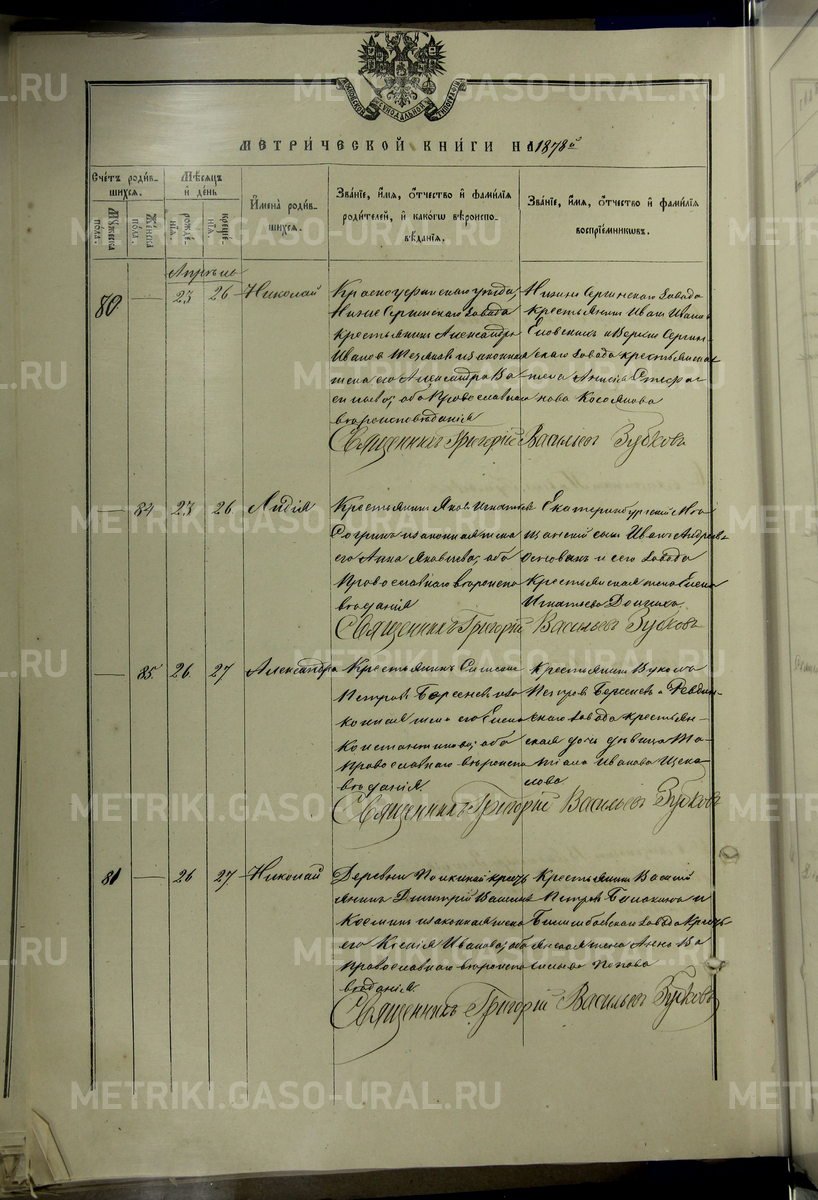 МЕТРИЧЕСКОЙ КНИГИ НА 1878й
Счетъ родив-
шихся.
Мужеска пола.
Женска пола.
Мѣсяцъ и день
рожденія.
крещенія.
Имена родив-
шихся.
Званіе, имя, отчество и фамилія
родителей, и какого вѣроиспо-
вѣданія.
Званіе, имя, отчество и фамилія
воспріемниковъ.
Апрѣль
80 — 23 26 Николай
Красноуфимскаго уѣзда,
Нижне Сергинскаго завода
крестьянинъ Александръ
Ивановъ и законная
жена его Александра Ва-
сильева; оба Православнаго
вѣроисповѣданія
Нижне Сергинскаго Завода
крестьянинъ Иванъ Ивановъ
и Верхне Сергин-
скаго завода крестьянская
жена
нова
Священникъ Григорій Васильевъ Зубковъ
— 84 23 26 Лидія
Крестьянинъ Яковъ Игнатьевъ
Согринъ и законная жена
его Анна Яковлева; оба
Православнаго вѣроиспо
вѣданія
Екатеринбургскій Мѣ
щанскій сынъ Иванъ Андреевъ
и сего завода
Крестьянская жена Елена
Игнатьева Долгихъ
Священникъ Григорій Васильевъ Зубковъ
— 85 26 27 Александра
Крестьянинъ
Петровъ Берсеневъ и за
конная жена его Елена
Константинова; оба
Православнаго вѣроиспо
вѣданія.
Крестьянинъ Вукола
Петровъ Берсеневъ и Ревдин-
скаго завода крестьян-
ская дочь дѣвица Та-
тіана Иванова Щека-
лова.
Священникъ Григорій Васильевъ Зубковъ
81 — 26 27 Николай
Деревни кресть
янинъ Димитрій
и законная жена
его Ксенія Иванова; оба
Православнаго вѣроиспо
вѣданія.
Крестьянинъ Василій
Петровъ и
Билимбаевскаго завода кресть
янская жена Анна Ва
сильева Попова
Священникъ Григорій Васильевъ Зубковъ
METRIKI.GASO-URAL.RU